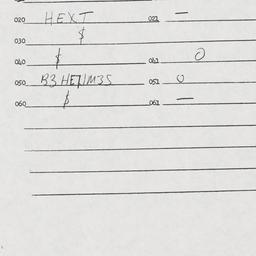 020 HEXT 021 —
030 $
040 $ 041 O
050 B3HE71M3S 051 O
060 $ 061 —